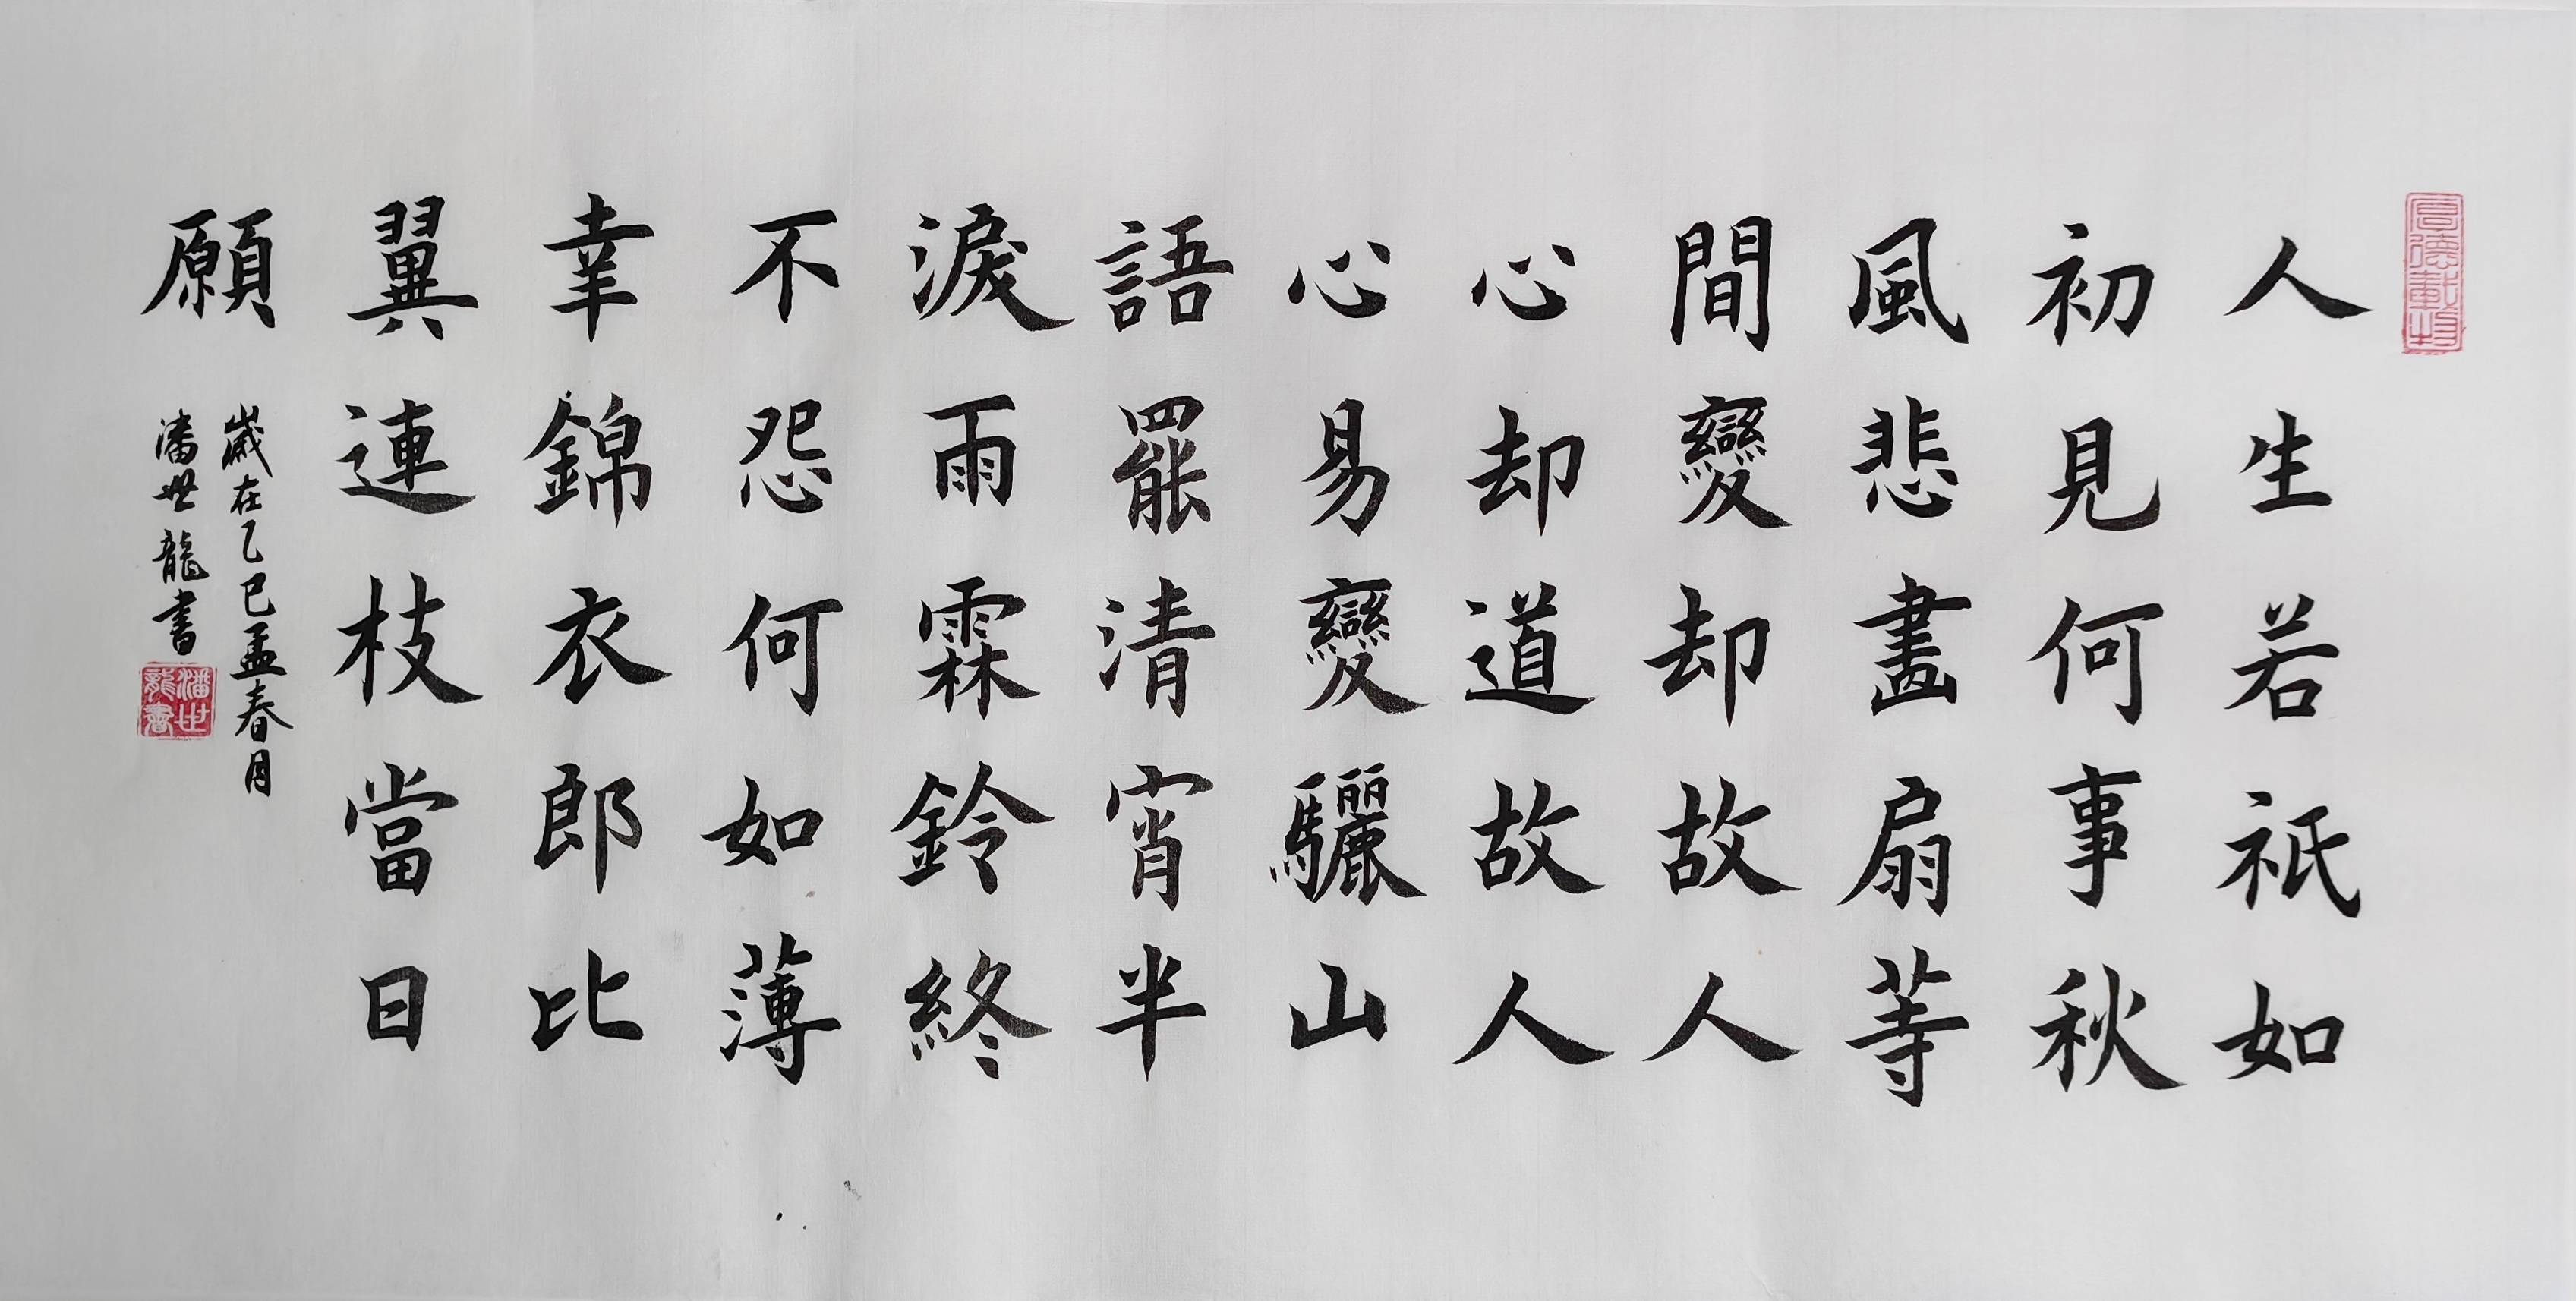 厚德載物
人生若祇如
初見何事秋
風悲畫扇等
間變却故人
心却道故人
心易變驪山
語罷清宵半
淚雨霖鈴終
不怨何如薄
幸錦衣郎比
翼連枝當日
願
歲在乙巳孟春月
潘世龍書
潘世龍書